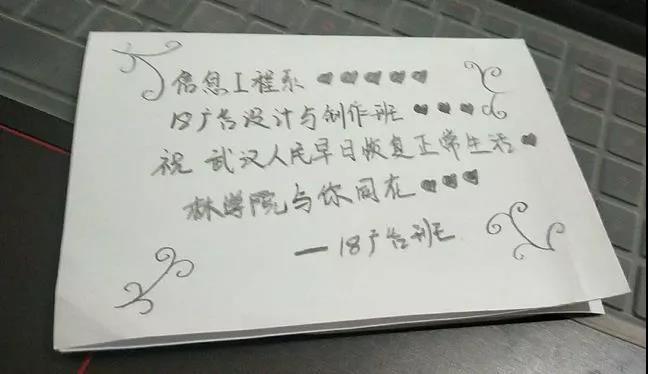 信息工程系 ♥♥♥♥♥
18广告设计与创作班 ♥♥♥♥
祝 武汉人民早日恢复正常生活♥
林学院与你同在♥♥♥
—18广告班